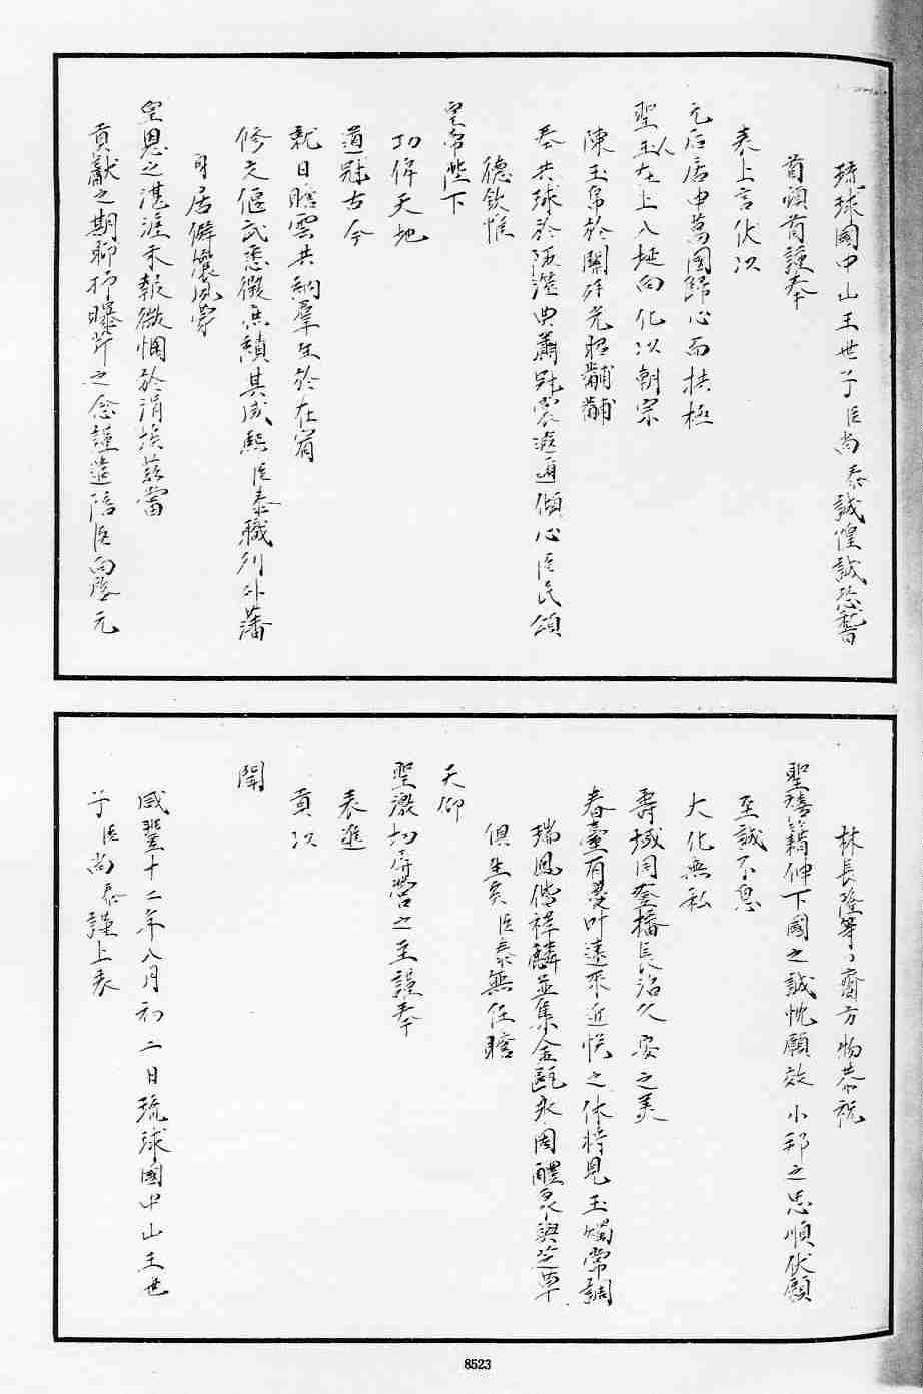 琉球國中山王世子臣尚泰誠惶誠恐稽
首頓首謹奉
表上言伏以
元后居中萬國歸心而拱極
聖主在上八埏向化以朝宗
陳玉帛於闕廷光昭黼黻
奉共球於陬澨典肅冠裳遐邇傾心臣民頌
德欽惟
皇帝陛下
功侔天地
道冠古今
就日瞻雲共納羣生於在宥
修文偃武悉徵庶績其咸熙臣泰職列外藩
居僻壤風穿
皇恩之湛滋未報微悃於涓埃茲當
貢獻之期聊抒曝芹之念謹遣陪臣向元
林長隆等齎方物恭祝
聖禧籍伸下國之誠忱願效小邦之忠順伏願
至誠不息
大化無私
壽域同登播長治久安之美
春臺有慶叶遠來近悅之休將見玉燭常調
瑞鳳偕祥麟並集金甌永固醴泉與芝草
俱生矣臣泰無任瞻
天仰
聖激切屏營之至謹奉
表進
貢以
聞
咸豐十二年八月初二日琉球國中山王世
子臣尚泰謹上表
8523